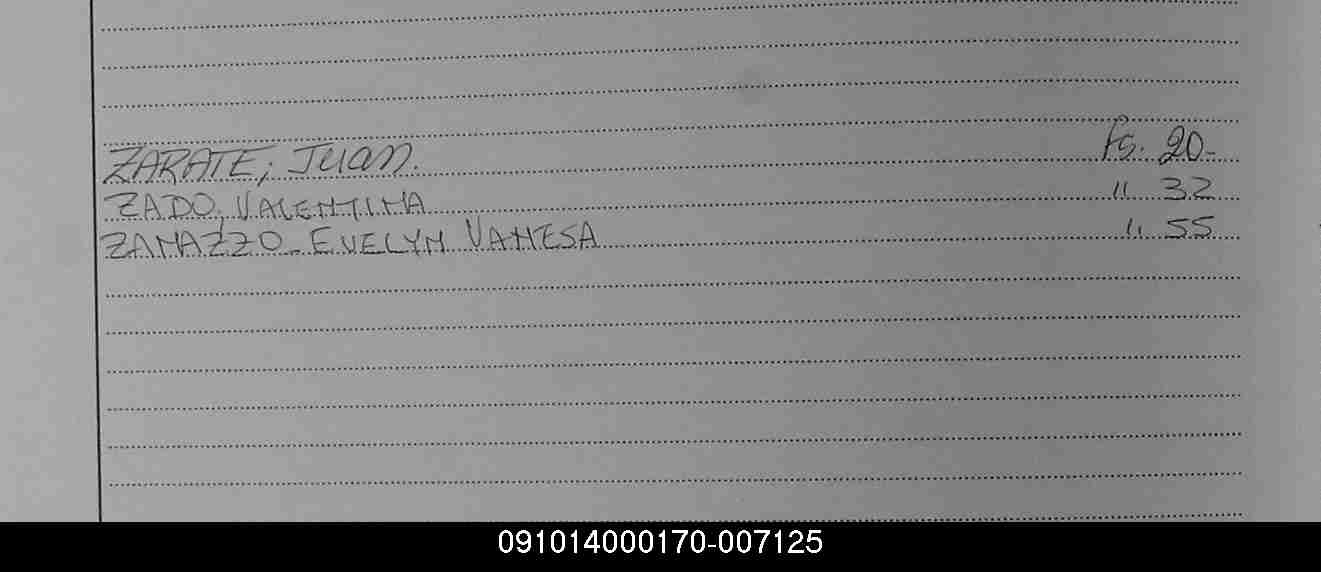 ZARATE, Juan. Fs. 20-
ZADO, VALENTINA " 32
ZANAZZO - EVELYN VANESA " 55
091014000170-007125